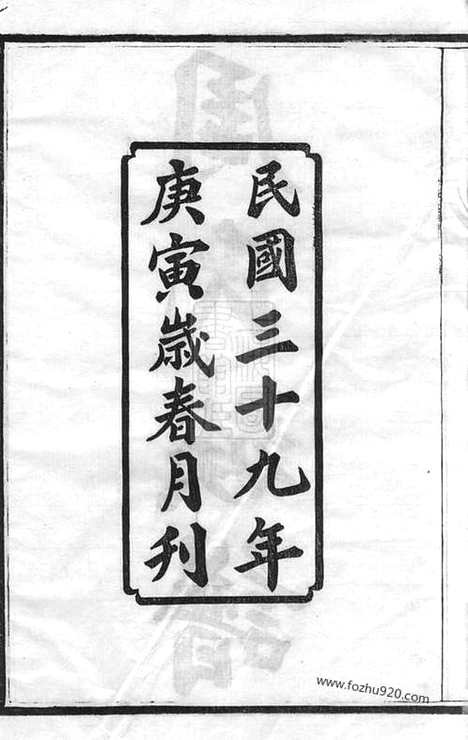 民國三十九年
庚寅歲春月刋
www.fozhu920.com